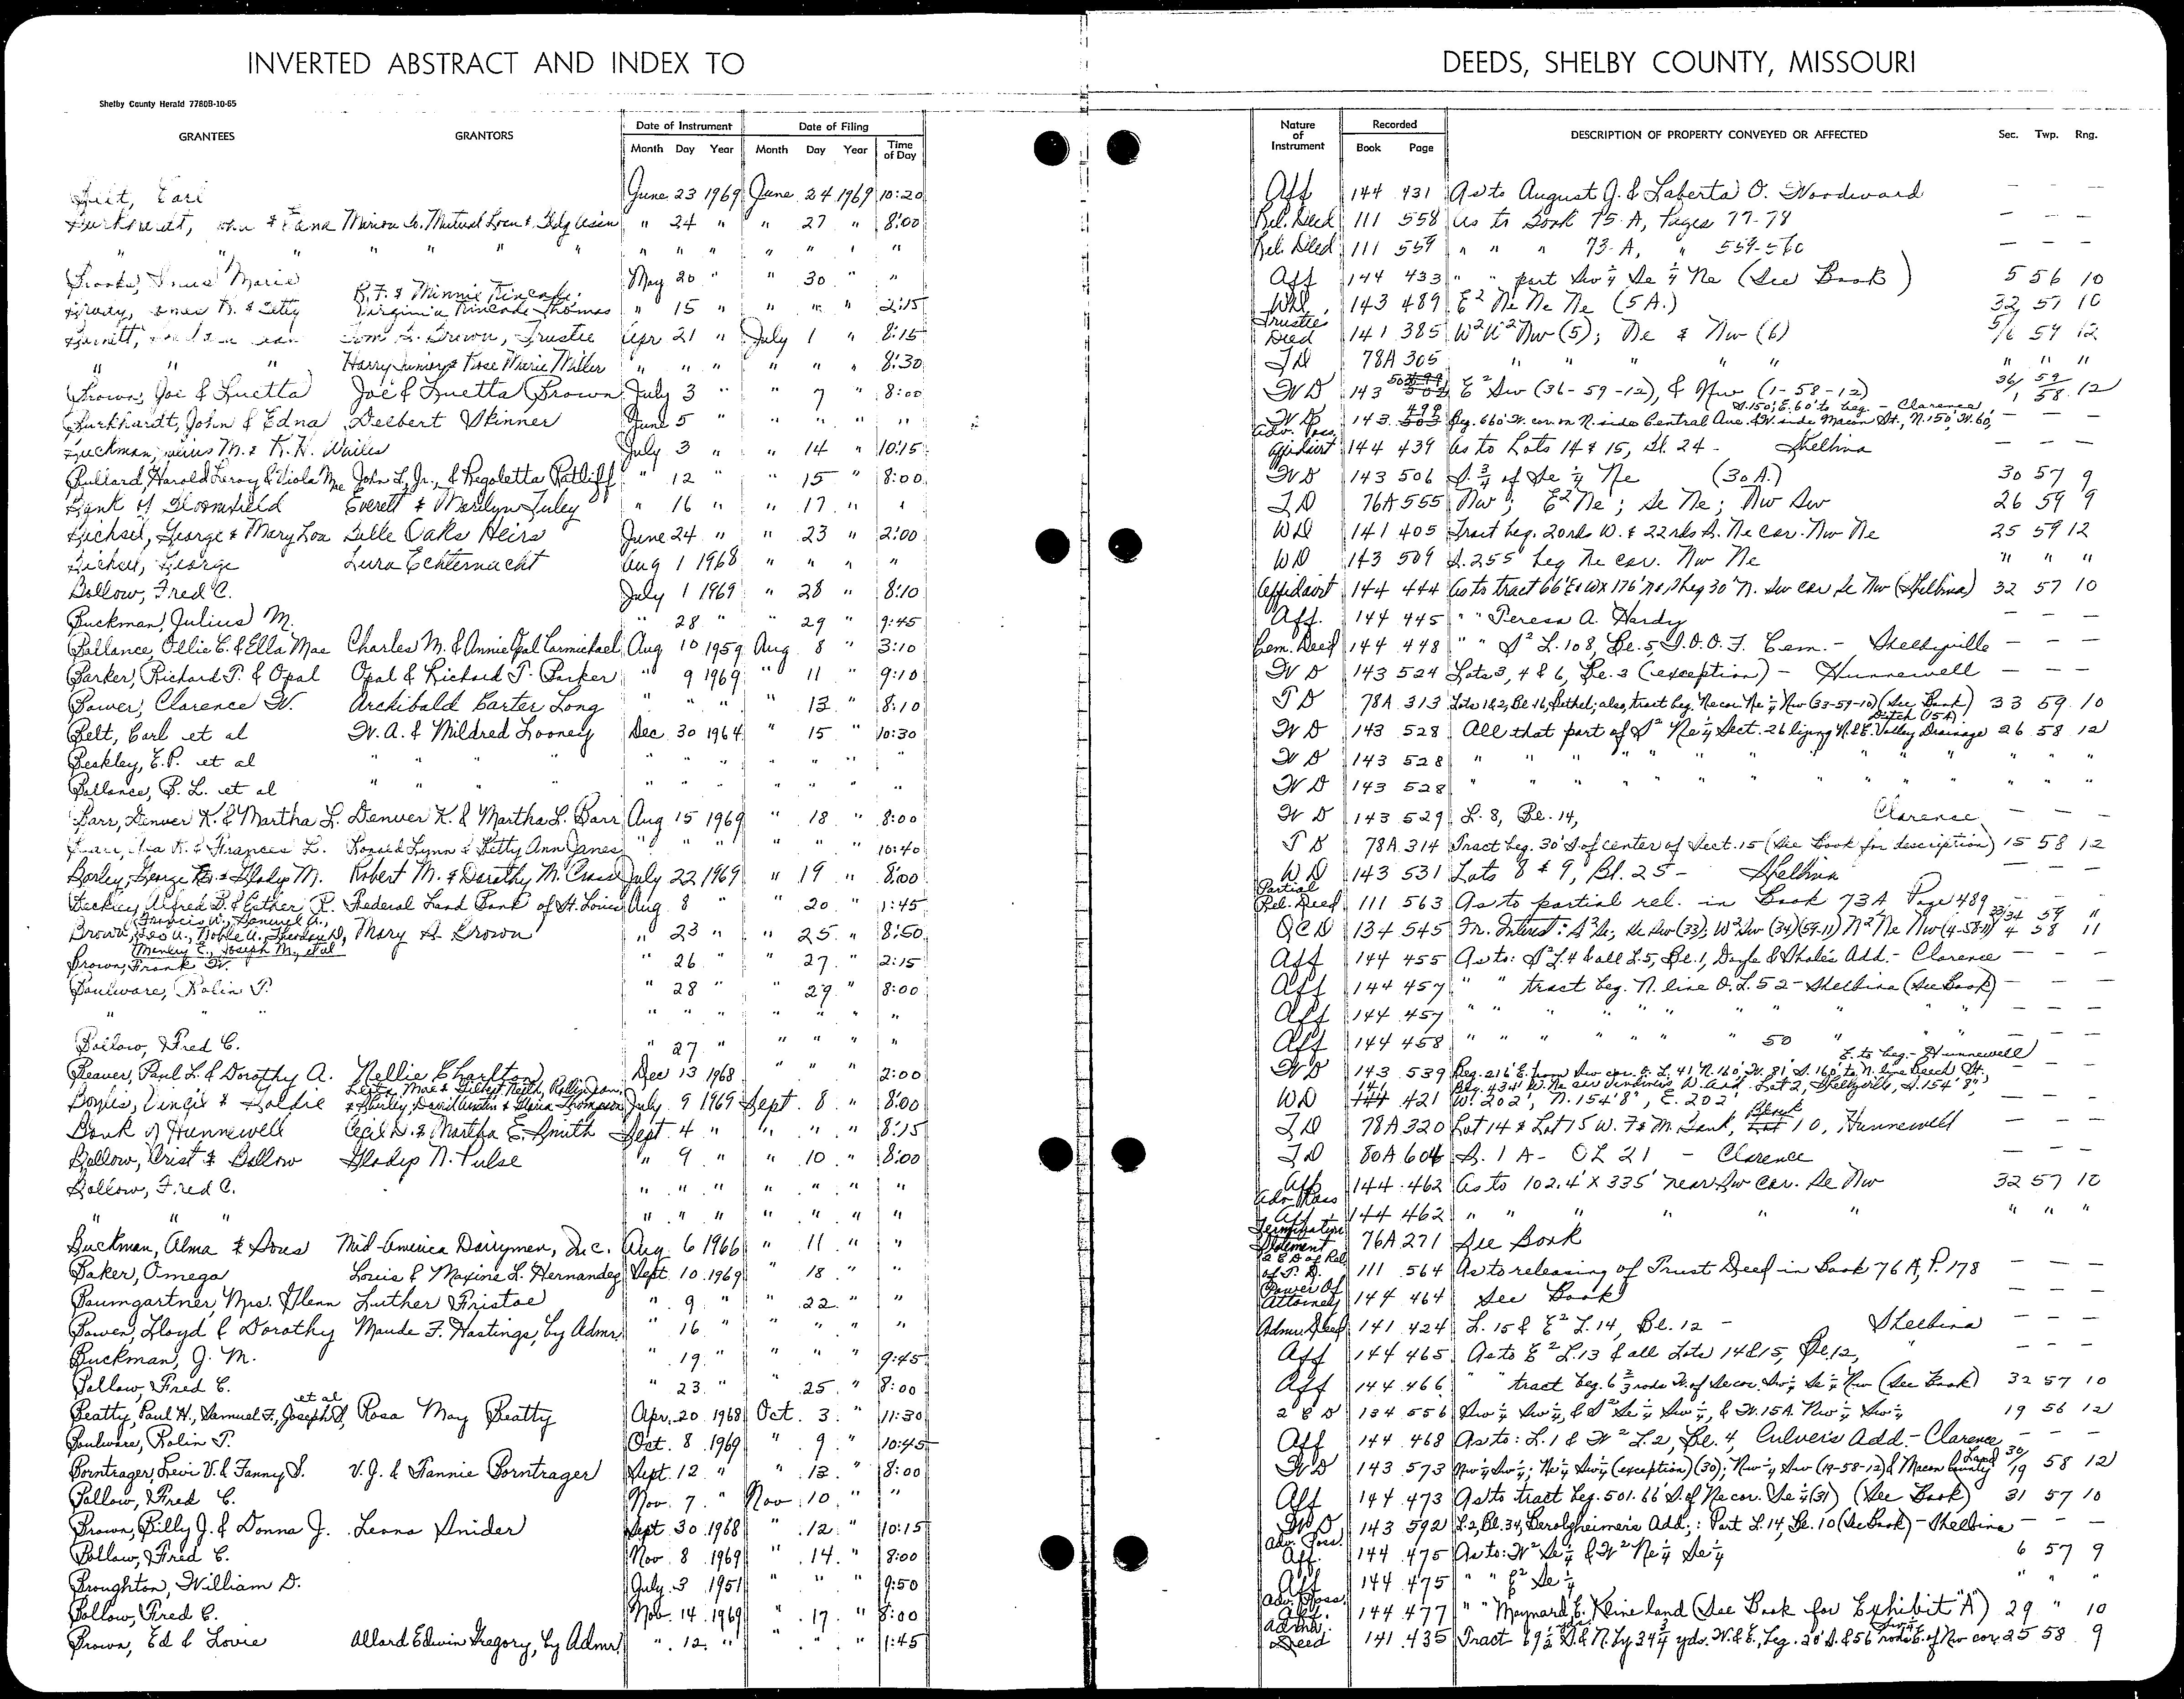 INVERTED ABSTRACT AND INDEX TO DEEDS, SHELBY COUNTY, MISSOURI
Shelby County Herald 7780B-10-65
GRANTEES GRANTORS Date of Instrument Date of Filing Nature of Instrument Recorded DESCRIPTION OF PROPERTY CONVEYED OR AFFECTED Sec. Twp. Rng.
Month Day Year Month Day Year Time of Day Book Page
Earl June 23 1969 June 24 1969 10:20 Aff 144 431 As to August J. & Laberta O. Woodward — — —
& Edna Marion Co. Mutual Loan & Bldg Assn " 24 " " 27 " 8:00 Rel. Deed 111 558 As to Book 75-A, Pages 77-78 — — —
" " " " " " " " " " " " " Rel. Deed 111 559 " " " 73-A, " 559-560 — — —
Marie May 20 " " 30 " " Aff 144 433 " " part Sw¼ Se¼ Ne (See Book) 5 56 10
& Betty R.F. & Minnie Kincade; Virginia Kincade Thomas " 15 " " " " 2:15 WD 143 489 E² Ne Ne Ne (5A.) 32 57 10
Tom B. Brown, Trustee Apr 21 " July 1 " 8:15 Trustee Deed 141 385 W²W²Nw (5); Ne & Nw (6) 5/6 59 12
" " Harry Junior & Rose Marie Miller " " " " " " 8:30 TD 78A 305 " " " " " " "
Brown, Joe & Luetta Joe & Luetta Brown July 3 " " 7 " 8:00 WD 143 E² Sw (36-59-12), & Nw (1-58-12) 36/1 59/58 12
Burkhardt, John & Edna Delbert Skinner June 5 " " " " " WD 143 498 Beg. 660' W. cor. on N. side Central Ave. & W. side Macon St., N. 150', W. 60', S. 150', E. 60' to beg. - Clarence — — —
Buckman, Julius M. & K.H. Wailes July 3 " " 14 " 10:15 Adv. Poss. Affidavit 144 439 As to Lots 14 & 15, Bl. 24 - Shelbina — — —
Bullard, Harold Leroy & Viola Mae John L., Jr., & Regoletta Ratliff " 12 " " 15 " 8:00 WD 143 506 S. ¾ of Se ¼ Ne (30A.) 30 57 9
Bank of Bloomfield Everett & Marilyn Tuley " 16 " " 17 " " TD 76A 555 Nw; E²Ne; Se Ne; Nw Sw 26 59 9
Bichsel, George & Mary Lou Belle Oaks Heirs June 24 " " 23 " 2:00 WD 141 405 Tract beg. 20rds W. & 22rds S. Ne cor. Nw Ne 25 59 12
Bichsel, George Lura Echternacht Aug 1 1968 " " " " WD 143 509 S. 255' beg Ne cor. Nw Ne " " "
Bollow, Fred C. July 1 1969 " 28 " 8:10 Affidavit 144 444 As to tract 66' E & W x 176' N & S beg 30' N. Sw cor Se Nw (Shelbina) 32 57 10
Buckman, Julius M. " 28 " " 29 " 9:45 Aff. 144 445 " " Teresa A. Hardy — — —
Ballance, Ollie C. & Ella Mae Charles M. & Annie Opal Carmichael Aug 10 1959 Aug. 8 " 3:10 Cem. Deed 144 448 " " S² L.108, Bl. 5, I.O.O.F. Cem. - Shelbyville — — —
Barker, Richard T. & Opal Opal & Richard T. Barker " 9 1969 " 11 " 9:10 WD 143 524 Lots 3, 4 & 6, Bl. 3 (exception) - Hunnewell — — —
Bower, Clarence W. Archibald Carter Long " " " " 13 " 8:10 TD 78A 313 Lots 1&2, Bl. 16, Bethel; also, tract beg. Ne cor. Ne ¼ Nw (33-59-10) (See Book) 33 59 10
Belt, Carl et al W.A. & Mildred Looney Dec 30 1964 " 15 " 10:30 WD 143 528 All that part of S² Ne¼ Sect. 26 lying N.&E. Valley Drainage Ditch (15A) 26 58 12
Beakley, E.P. et al " " " " " " " " " " " WD 143 528 " " " " " " " " " " " "
Ballance, B.L. et al " " " " " " " " " " " WD 143 528 " " " " " " " " " " " "
Barr, Denver K. & Martha L. Denver K. & Martha L. Barr Aug 15 1969 " 18 " 8:00 WD 143 529 L. 8, Bl. 14, Clarence — — —
& Frances L. Ronald Lynn & Betty Ann Janes " " " " " " 10:40 TD 78A 314 Tract beg. 30' S of center of Sect. 15 (See Book for description) 15 58 12
George & Gladys M. Robert M. & Dorothy M. July 22 1969 " 19 " 8:00 WD 143 531 Lots 8 & 9, Bl. 25 - Shelbina — — —
Alfred & Esther R. Federal Land Bank of St. Louis Aug. 8 " " 20 " 1:45 Partial Rel. Deed 111 563 As to partial rel. in Book 73A Page 489 — — —
Brown, Leo U., Noble A., Theodore D., Francis V., Samuel A., Manley E., Joseph M., et al Mary A. Brown " 23 " " 25 " 8:50 QCD 134 545 Fr. Interest: S²Se; Se Sw (33); W²Sw (34)(59-11) N²Ne Nw (4-58-11) 33/34 59 " 4 58 11
Brown, Frank W. " 26 " " 27 " 2:15 Aff 144 455 As to: S²L.4 & all L.5, Bl. 1, Doyle & Shale's Add. - Clarence — — —
Boulware, Rolin T. " 28 " " 29 " 8:00 Aff 144 457 " " tract beg. N. line O.L. 52 - Shelbina (See Book) — — —
" " " " " " " " " Aff 144 457 " " " " " " " " — — —
Bollow, Fred C. " 27 " " " " " Aff 144 458 " " " " " " 50 " " " — — —
Beaver, Paul L. & Dorothy A. Nellie Charlton Dec 13 1968 " " " 2:00 WD 143 539 Beg. 216' E. from Sw cor. O.L. 41, N. 160', W. 81', S. 160' to N. line Beech St. E. to beg. - Hunnewell — — —
& Goldie July 9 1969 Sept. 8 " 8:00 WD 141 421 W. 202', N. 154'8", E. 202' — — —
Bank of Hunnewell Cecil D. & Martha E. Smith Sept. 4 " " " " 8:15 TD 78A 320 Lot 14 & Lot 15 W. F&M. Bank, Block 10, Hunnewell — — —
Bollow, Crist & Bollow Gladys N. Pulse " 9 " " 10 " 8:00 TD 80A 604 S. 1 A - OL 21 - Clarence — — —
Bollow, Fred C. " " " " " " " Aff 144 462 As to 102.4' X 335' near Sw cor. Se Nw 32 57 10
" " " " " " " " " " Adv. Poss Aff. 144 462 " " " " " " " " "
Buckman, Alma & Sons Mid-America Dairymen, Inc. Aug. 6 1966 " 11 " " Termination Statement 76A 271 See Book
Baker, Omega Louis & Maxine L. Hernandez Sept. 10 1969 " 18 " " of Rel. of T.D. 111 564 As to releasing of Trust Deed in Book 76A, P. 178 — — —
Baumgartner, Mrs. Glenn Luther Fristoe " 9 " " 22 " " Power Of Attorney 144 464 See Book — — —
Bower, Lloyd & Dorothy Maude F. Hastings, by Admr. " 16 " " " " " Admr. Deed 141 424 L. 15 & E² L. 14, Bl. 12 - Shelbina — — —
Buckman, J. M. " 19 " " " " 9:45 Aff 144 465 As to E² L.13 & all Lots 14&15, Bl. 12, " — — —
Bollow, Fred C. " 23 " " 25 " 8:00 Aff 144 466 " " tract beg. 6⅔ rods W. of Se cor. Sw¼ Se¼ Nw (See Book) 32 57 10
Beatty, Paul H., Samuel F., Joseph S, et al Rosa May Beatty Apr. 20 1968 Oct. 3 " 11:30 QCD 134 556 Sw¼ Sw¼, & S² Se¼ Sw¼, & W. 15A. Nw¼ Sw¼ 19 56 12
Boulware, Rolin T. Oct. 8 1969 " 9 " 10:45 Aff 144 468 As to: L.1 & W² L.2, Bl. 4, Culver's Add. - Clarence — — —
Borntrager, Levi V. & Fanny S. V.J. & Fannie Borntrager Sept. 12 " " 13 " 8:00 WD 143 573 Nw¼ Sw¼; Ne¼ Sw¼ (exception) (30); Nw¼ Sw (19-58-12) & Macon County Land 30/19 58 12
Bollow, Fred C. Nov. 7 " Nov. 10 " " Aff 144 473 As to tract beg. 501.66' S. of Ne cor. Se¼ (31) (See Book) 31 57 10
Brown, Billy J. & Donna J. Leona Snider Sept 30 1968 " 12 " 10:15 WD 143 592 L.2, Bl. 34, Berolzheimer's Add.; Part L.14, Bl. 10 (See Book) - Shelbina — — —
Bollow, Fred C. Nov. 8 1969 " 14 " 8:00 Adv. Poss. Aff. 144 475 As to: W² Se¼ & W² Ne¼ Se¼ 6 57 9
Broughton, William D. July 3 1951 " " " 9:50 Aff 144 475 " " E² Se¼ " " "
Bollow, Fred C. Nov. 14 1969 " 17 " 8:00 Adv. Poss. Aff. 144 477 " " Maynard E. Kline land (See Book for Exhibit "A") 29 " 10
Brown, Ed & Lovie Allard Edwin Gregory, by Admr. " 12 " " " " 1:45 Admr. Deed 141 435 Tract 69½ S.&N. by 34¾ yds. W.&E., beg. 20' S. & 56 rods E. of Nw cor. 25 58 9